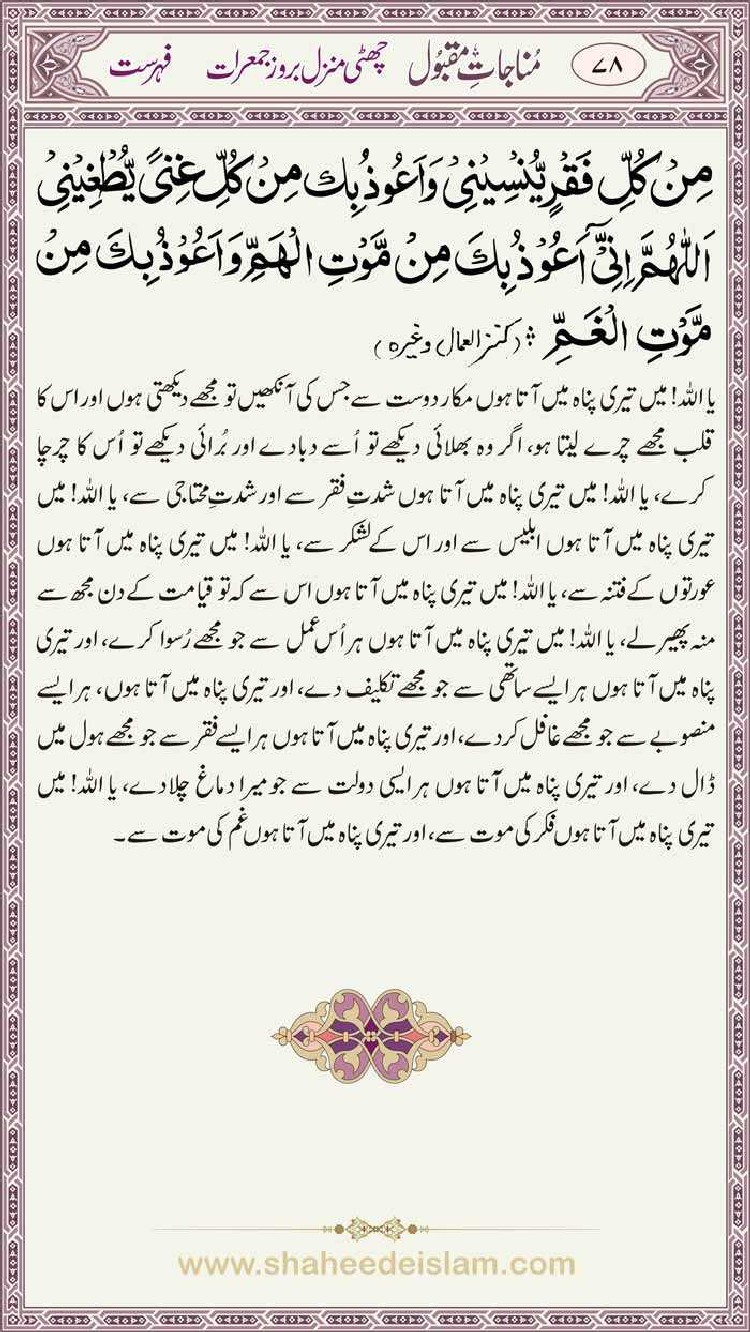 ۷۸ مُناجاتِ مقبُول چھٹی منزل بروز جمعرات فہرست
مِنْ کُلِّ فَقْرٍ یُّنْسِیْنِیْ وَاَعُوْذُ بِكَ مِنْ کُلِّ غِنًی یُّطْغِیْنِیْ
اَللّٰهُمَّ اِنِّیْٓ اَعُوْذُ بِكَ مِنْ مَّوْتِ الْهَمِّ وَاَعُوْذُ بِكَ مِنْ
مَّوْتِ الْغَمِّ ؞ (کنز العمال وغیرہ)
یا اللہ! میں تیری پناہ میں آتا ہوں مکار دوست سے جس کی آنکھیں تو مجھے دیکھتی ہوں اور اس کا
قلب مجھے چرے لیتا ہو، اگر وہ بھلائی دیکھے تو اُسے دبادے اور بُرائی دیکھے تو اُس کا چرچا
کرے، یا اللہ! میں تیری پناہ میں آتا ہوں شدتِ فقر سے اور شدتِ محتاجی سے، یا اللہ! میں
تیری پناہ میں آتا ہوں ابلیس سے اور اس کے لشکر سے، یا اللہ! میں تیری پناہ میں آتا ہوں
عورتوں کے فتنہ سے، یا اللہ! میں تیری پناہ میں آتا ہوں اس سے کہ تو قیامت کے دن مجھ سے
منہ پھیر لے، یا اللہ! میں تیری پناہ میں آتا ہوں ہر اُس عمل سے جو مجھے رُسوا کرے، اور تیری
پناہ میں آتا ہوں ہر ایسے ساتھی سے جو مجھے تکلیف دے، اور تیری پناہ میں آتا ہوں، ہر ایسے
منصوبے سے جو مجھے غافل کردے، اور تیری پناہ میں آتا ہوں ہر ایسے فقر سے جو مجھے ہول میں
ڈال دے، اور تیری پناہ میں آتا ہوں ہر ایسی دولت سے جو میرا دماغ چلادے، یا اللہ! میں
تیری پناہ میں آتا ہوں فکر کی موت سے، اور تیری پناہ میں آتا ہوں غم کی موت سے۔
www.shaheedeislam.com